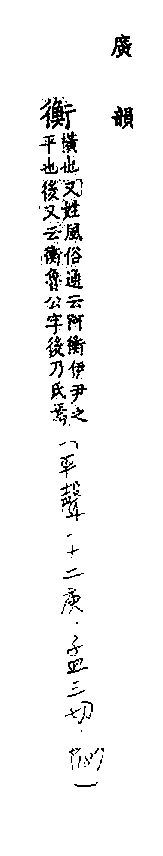 廣韻
衡
橫也又姓風俗通云阿衡伊尹之
平也後又云衡魯公字後乃氏焉
(平聲.十二庚.孟三切.P187)